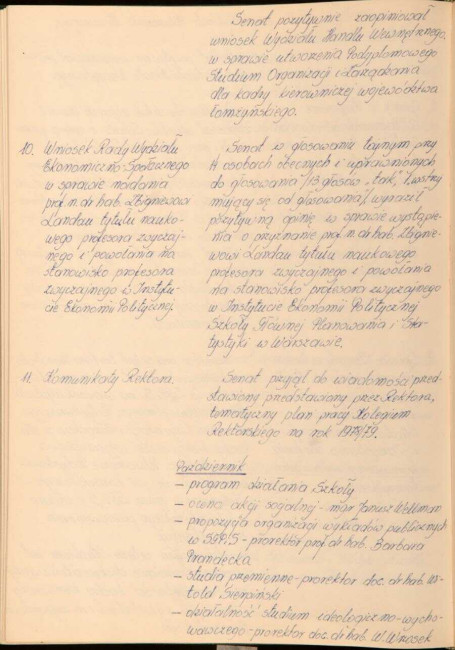 Senat pozytywnie zaopiniował
wniosek Wydziału Handlu Wewnętrznego
w sprawie utworzenia Podyplomowego
Studium Organizacji i Zarządzania
dla kadry kierowniczej województwa
łomżyńskiego.
10. Wniosek Rady Wydziału
Ekonomiczno-Społecznego
w sprawie nadania
prof. n. dr hab. Zbigniewowi
Landau tytułu nauko-
wego profesora zwyczaj-
nego i powołania na
stanowisko profesora
zwyczajnego w Instytu-
cie Ekonomii Politycznej.
Senat w głosowaniu tajnym przy
14 osobach obecnych i uprawnionych
do głosowania /13 głosów „tak", 1 wstrzy
mujący się od głosowania/ wyraził
pozytywną opinię w sprawie wystąpie-
nia o przyznanie prof. n. dr hab. Zbignie-
wowi Landau tytułu naukowego
profesora zwyczajnego i powołania
na stanowisko profesora zwyczajnego
w Instytucie Ekonomii Politycznej
Szkoły Głównej Planowania i Sta-
tystyki w Warszawie.
11. Komunikaty Rektora.
Senat przyjął do wiadomości przed-
stawiony przez Rektora,
tematyczny plan pracy Kolegium
Rektorskiego na rok 1978/79.
Październik
- program działania Szkoły
- ocena akcji socjalnej - mgr Janusz
- propozycja organizacji wykładów publicznych
w SGPiS - prorektor prof. dr hab. Barbara
Prandecka
- studia przemienne - prorektor doc. dr hab. Wi-
told Sierpiński
- działalność studium ideologiczno-wycho-
wawczego - prorektor doc. dr hab. W. Wnosek